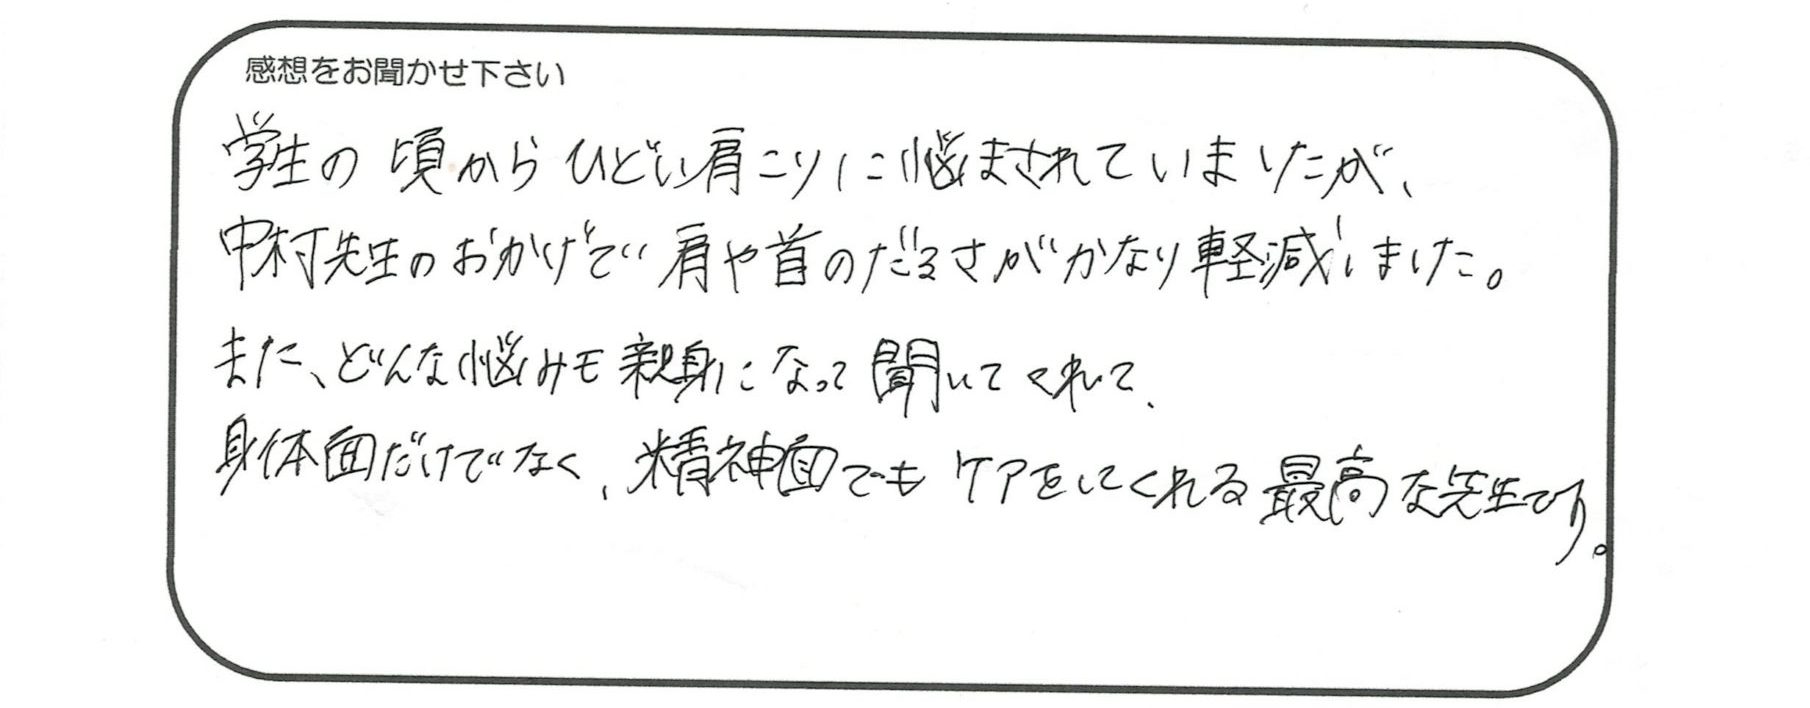 感想をお聞かせ下さい
学生の頃からひどい肩こりに悩まされていましたが、
中村先生のおかげで肩や首のだるさがかなり軽減しました。
また、どんな悩みも親身になって聞いてくれて、
身体面だけでなく、精神面でもケアをしてくれる最高な先生です。